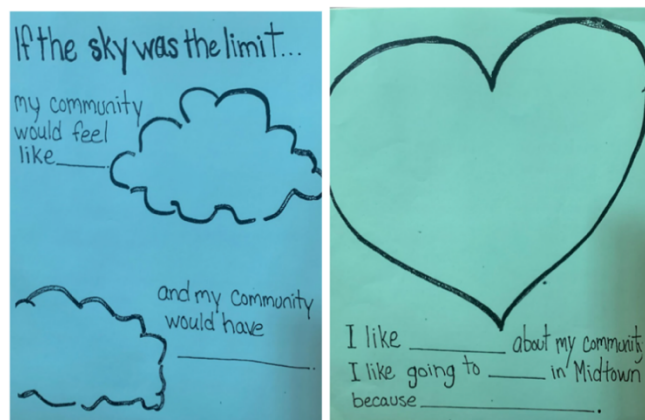 If the sky was the limit...
my community
would feel
like______.
and my community
would have
______________.
I like ________ about my community
I like going to ______ in Midtown
because ________________.